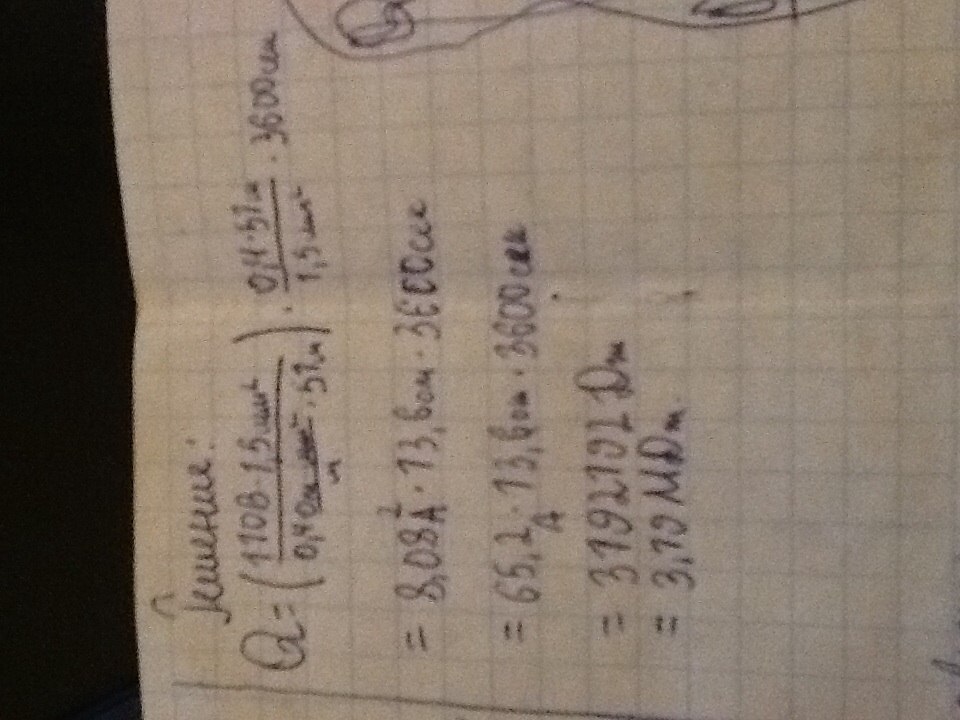 Решение:
Q = (110В · 1,5мм² / 0,4 Ом мм²/м · 51м)² · 0,4 · 51м / 1,5 мм² · 3600сек
= 8,08² А · 13,6 ом · 3600сек
= 65,2 А · 13,6 ом · 3600сек
= 3192192 Дж
= 3,19 МДж.